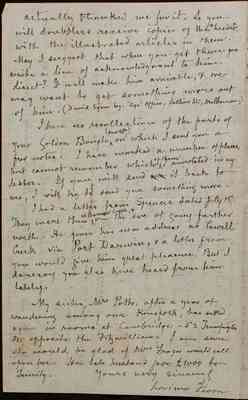 actually thanked me for it. So you
will doubtless receive copies of the
with the illustrated articles in them.
May I suggest that when you get these you
write a line of acknowledgment to him
direct? It will make him amiable, & we
may want to get something more out
of him. (David Syme Esq. "Age" Office, Collins St. Melbourne).
I have no recollection of the parts of
your Golden Bough, on which I sent you a
few notes. I have marked a number of places,
but cannot remember which I annotated in my
letter. If you will send it back to
me, I will try to send you something more.
I had a letter from Spencer dated July 18.
They were then on the eve of going further
north. He gives his new address as Powell
Creek via Port Darwin, & a letter from
you would give him great pleasure. But I
daresay you also have heard from him
lately.
My sister, Mrs Potts, after a year of
wandering among our kinsfolk, has settled
again in rooms at Cambridge - 53 Trumpington
St. opposite the Fitzwilliam. I am sure
she would be glad if Mrs Frazer would call
upon her. Her late husband was
Trinity.
Yours very sincerely
Lorimer Fison